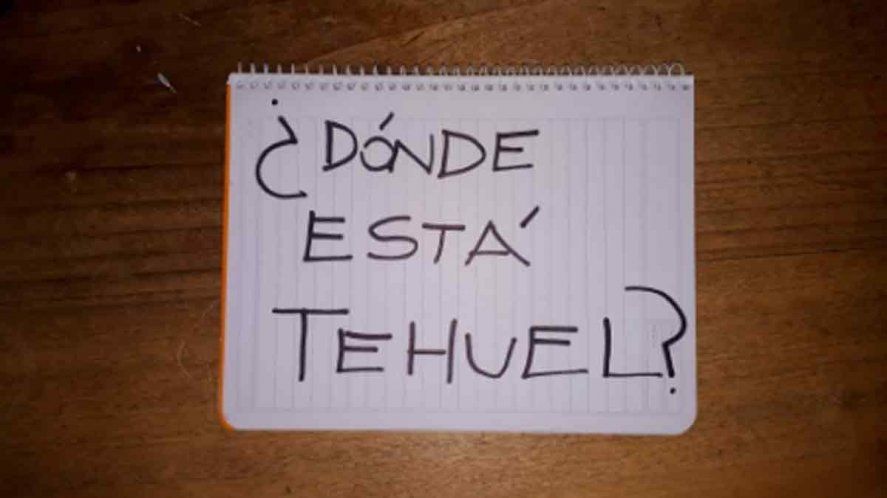 ¿DÓNDE
ESTÁ
TEHUEL?